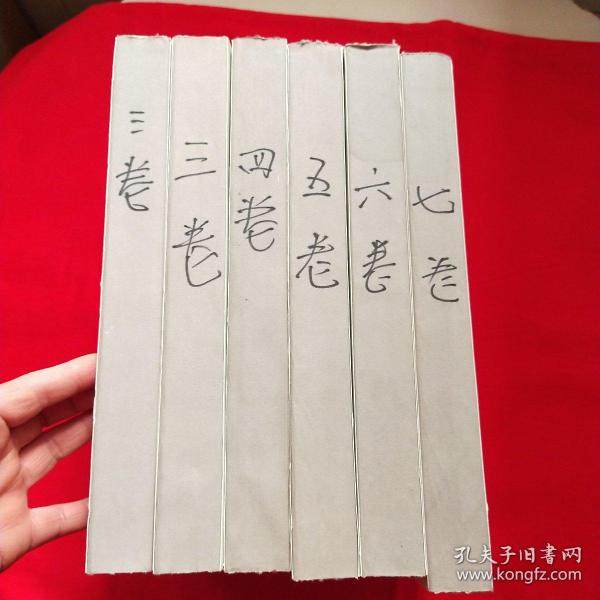 三卷
三卷
四卷
五卷
六卷
七卷
孔夫子旧書网
www.kongfz.com